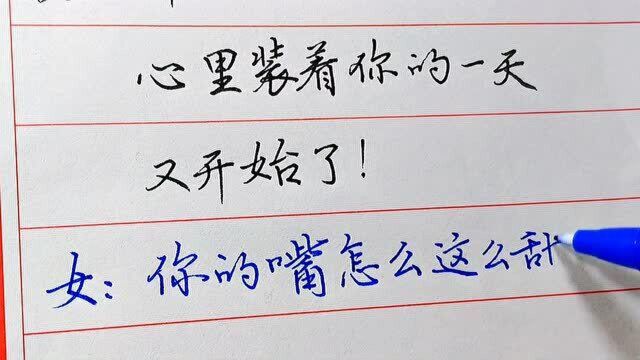 心里装着你的一天
又开始了!
女:你的嘴怎么这么